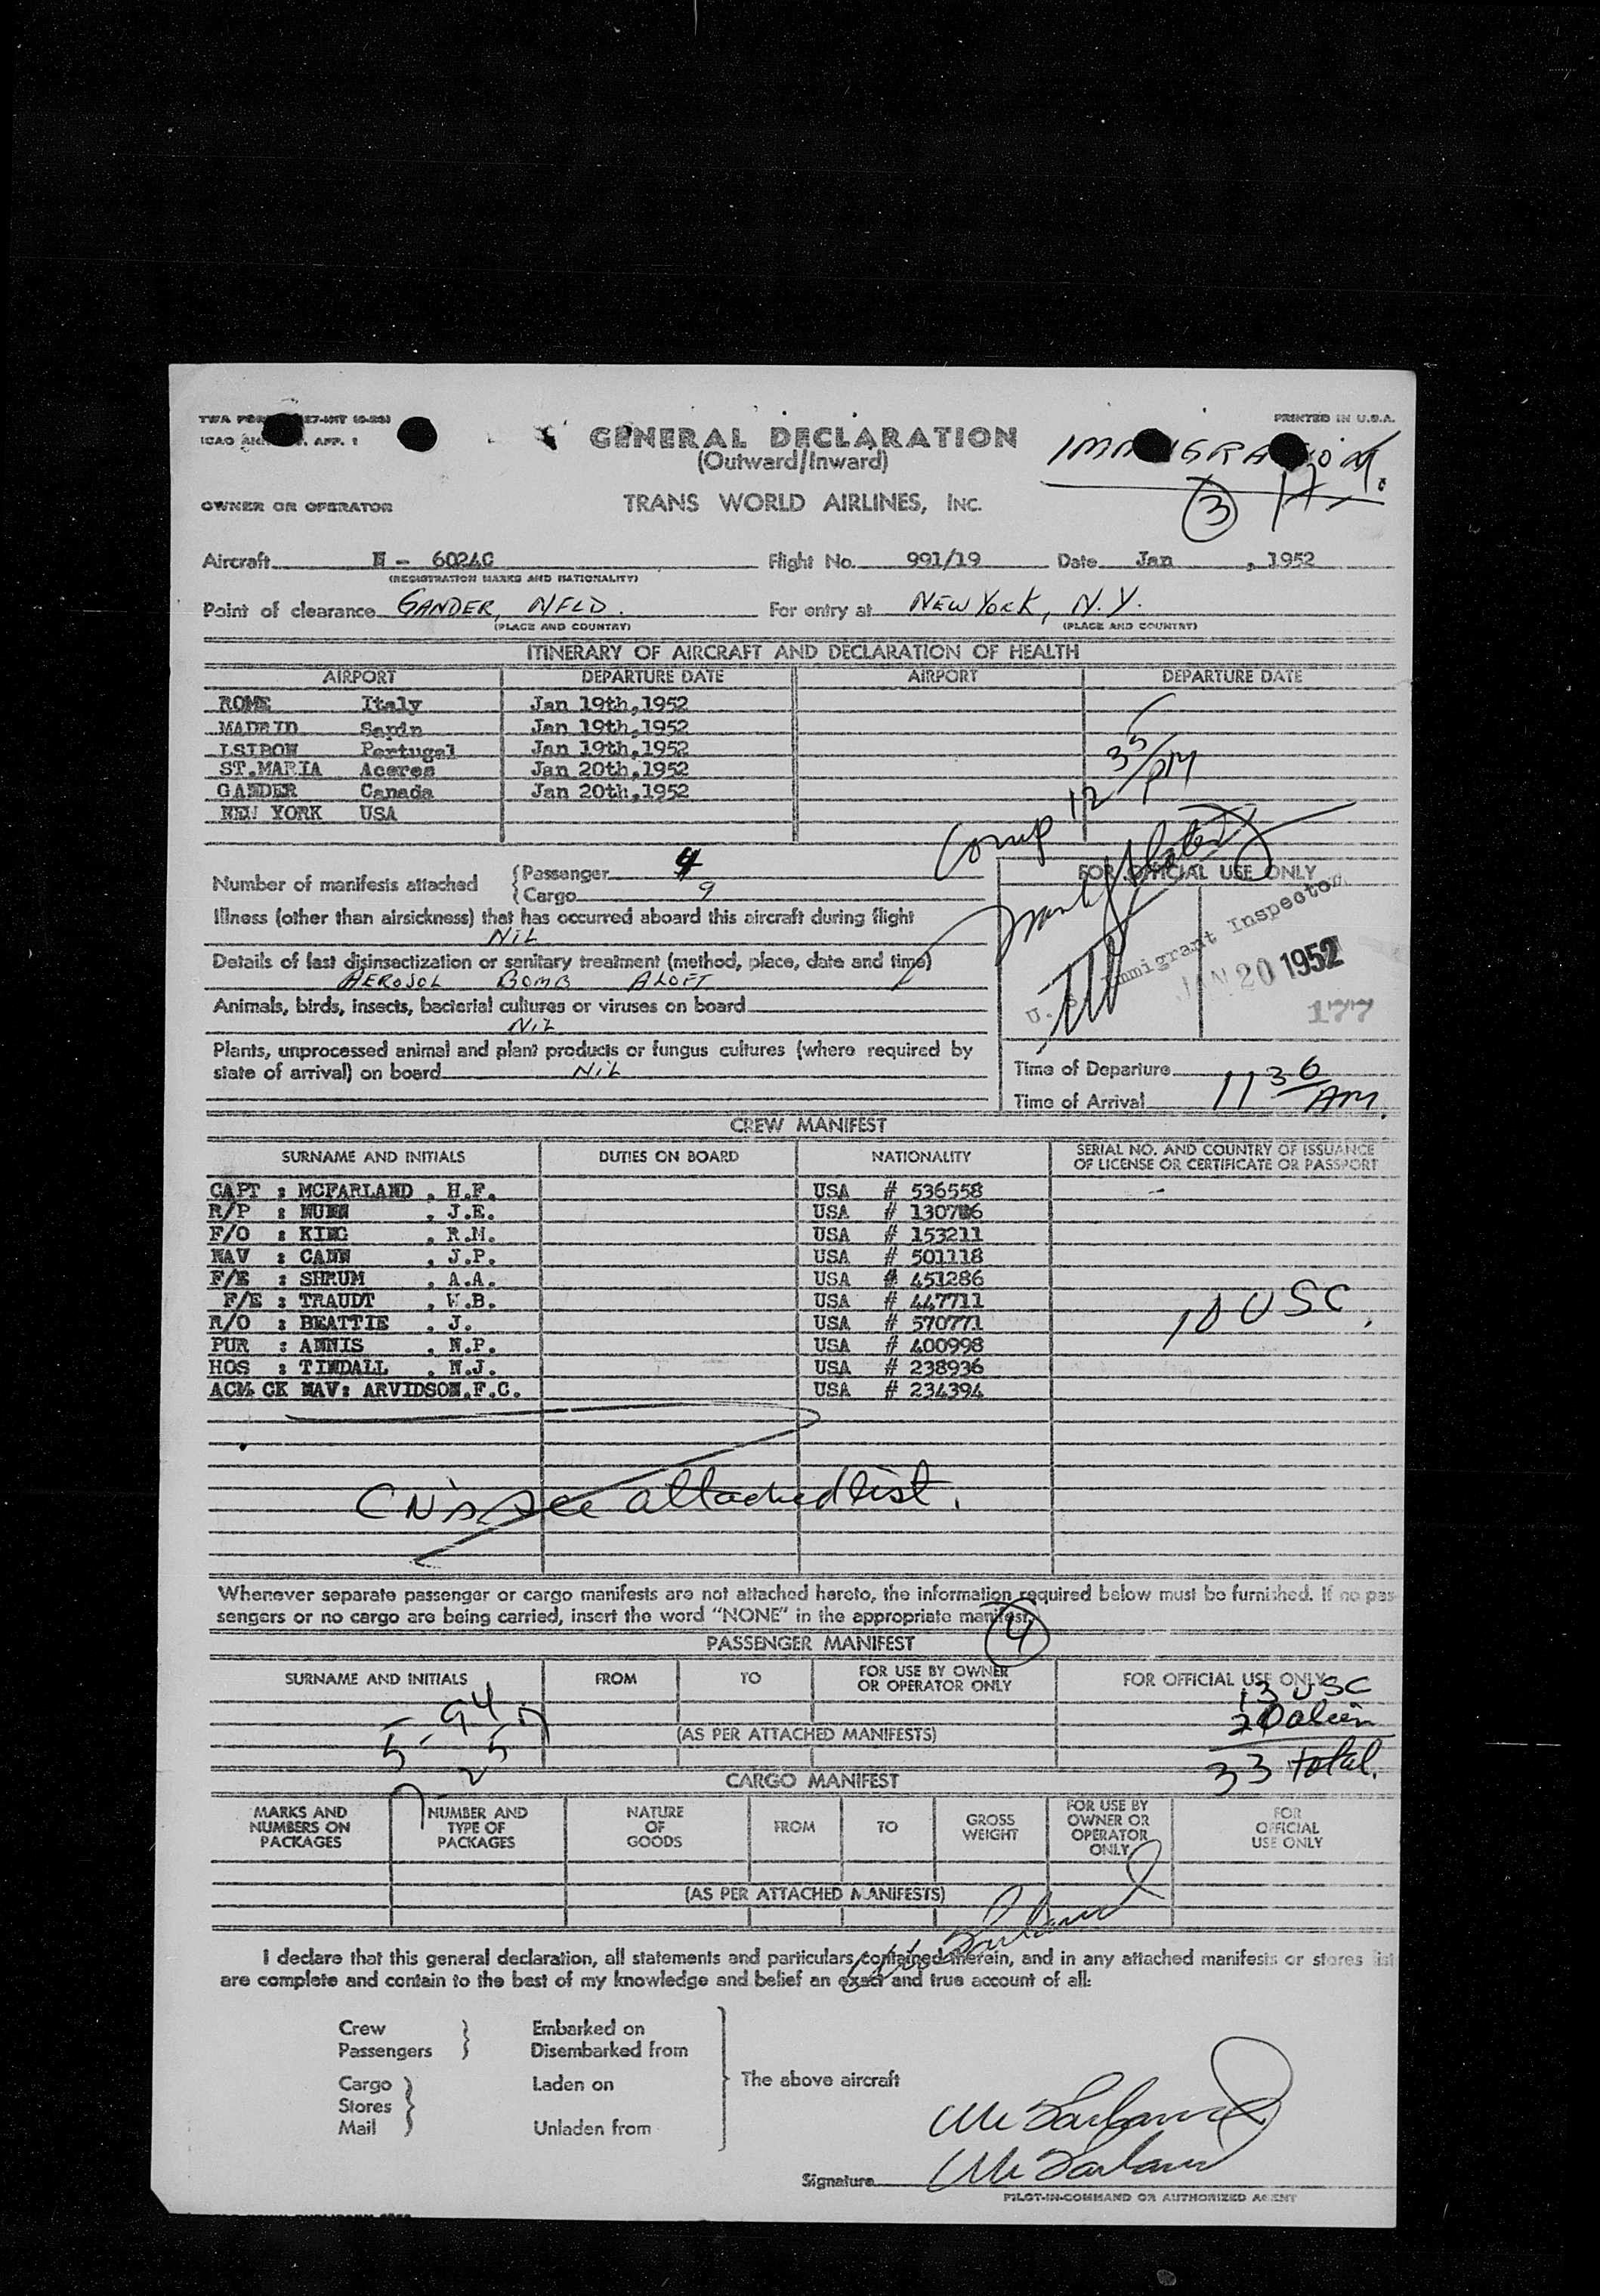 PRINTED IN U.S.A.
GENERAL DECLARATION
(Outward/Inward)
OWNER OR OPERATOR TRANS WORLD AIRLINES, INC.
3
Aircraft N - 6024C Flight No. 991/19 Date Jan , 1952
(REGISTRATION MARKS AND NATIONALITY)
Point of clearance GANDER, NFLD. For entry at NEW YORK, N.Y.
(PLACE AND COUNTRY) (PLACE AND COUNTRY)
ITINERARY OF AIRCRAFT AND DECLARATION OF HEALTH
AIRPORT DEPARTURE DATE AIRPORT DEPARTURE DATE
ROME Italy Jan 19th,1952
MADRID Sapin Jan 19th,1952
LSIBON Portugal Jan 19th,1952
ST.MARIA Acores Jan 20th,1952
GANDER Canada Jan 20th,1952
NEW YORK USA
Comp 12 35/PM
Number of manifests attached
Passenger 4
Cargo 9
FOR OFFICIAL USE ONLY
Illness (other than airsickness) that has occurred aboard this aircraft during flight
NIL
Details of last disinsectization or sanitary treatment (method, place, date and time)
AEROSOL BOMB ALOFT
U. S. Immigrant Inspector
JAN 20 1952
177
Animals, birds, insects, bacterial cultures or viruses on board
NIL
Plants, unprocessed animal and plant products or fungus cultures (where required by
state of arrival) on board NIL
Time of Departure
Time of Arrival 11 36 AM.
CREW MANIFEST
SURNAME AND INITIALS DUTIES ON BOARD NATIONALITY SERIAL NO. AND COUNTRY OF ISSUANCE
OF LICENSE OR CERTIFICATE OR PASSPORT
CAPT : MCFARLAND , H.F. USA # 536558
R/P : NUNN , J.E. USA # 130786
F/O : KING , R.M. USA # 153211
NAV : CANN , J.P. USA # 501118
F/E : SHRUM , A.A. USA # 451286
F/E : TRAUDT , W.B. USA # 447711
R/O : BEATTIE , J. USA # 570771
PUR : ANNIS , N.P. USA # 400998
HOS : TINDALL , N.J. USA # 238936
ACM CK NAV: ARVIDSON,F.C. USA # 234394
10 USC.
CN's see attached list.
Whenever separate passenger or cargo manifests are not attached hereto, the information required below must be furnished. If no pas-
sengers or no cargo are being carried, insert the word "NONE" in the appropriate manifest.
4
PASSENGER MANIFEST
SURNAME AND INITIALS FROM TO FOR USE BY OWNER
OR OPERATOR ONLY FOR OFFICIAL USE ONLY
13 USC
20 alien
33 total.
(AS PER ATTACHED MANIFESTS)
CARGO MANIFEST
MARKS AND
NUMBERS ON
PACKAGES
NUMBER AND
TYPE OF
PACKAGES
NATURE
OF
GOODS
FROM TO GROSS
WEIGHT
FOR USE BY
OWNER OR
OPERATOR
ONLY
FOR
OFFICIAL
USE ONLY
(AS PER ATTACHED MANIFESTS)
McFarland
I declare that this general declaration, all statements and particulars contained therein, and in any attached manifests or stores list
are complete and contain to the best of my knowledge and belief an exact and true account of all:
Crew Embarked on
Passengers Disembarked from
Cargo Laden on The above aircraft
Stores
Mail Unladen from
McFarland
Signature McFarland
PILOT-IN-COMMAND OR AUTHORIZED AGENT